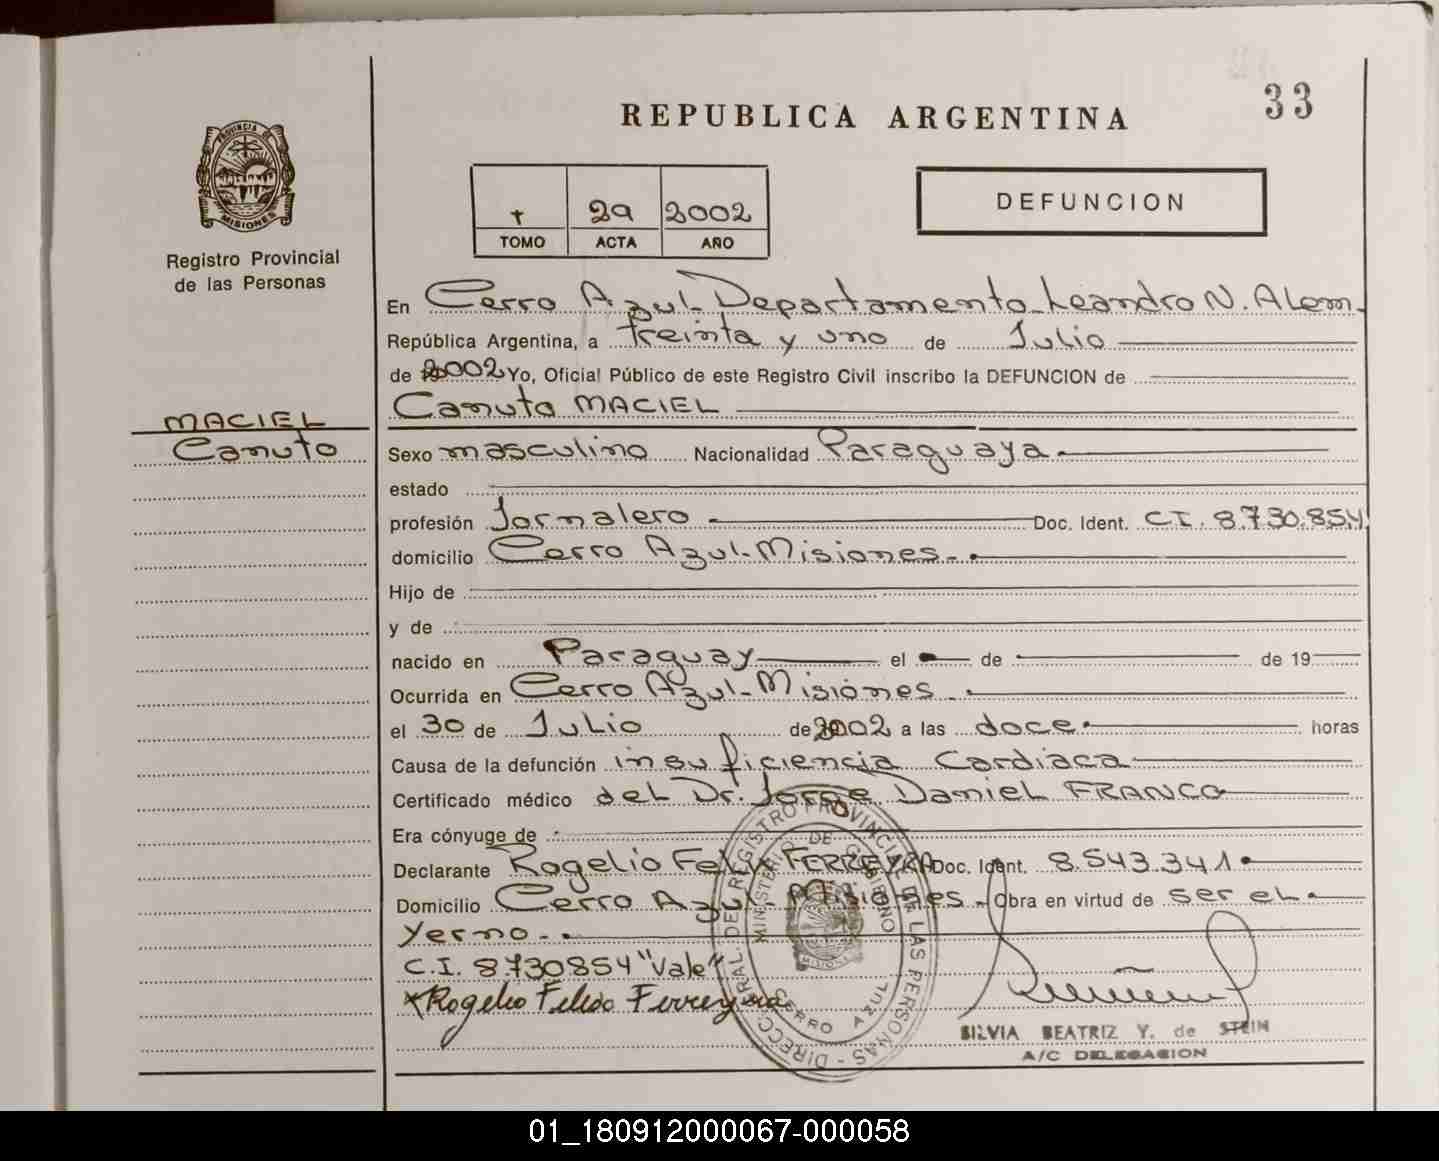 33
REPUBLICA ARGENTINA
PROVINCIA DE MISIONES
Registro Provincial
de las Personas
1 29 2002
TOMO ACTA AÑO
DEFUNCION
En Cerro Azul - Departamento Leandro N. Alem -
República Argentina, a treinta y uno de Julio
de 2002 Yo, Oficial Público de este Registro Civil inscribo la DEFUNCION de
Canuto MACIEL
MACIEL
Canuto
Sexo masculino Nacionalidad Paraguaya -
estado
profesión Jornalero - Doc. Ident. C.I. 8.730.854
domicilio Cerro Azul - Misiones -
Hijo de
y de
nacido en Paraguay el - de de 19
Ocurrida en Cerro Azul - Misiones -
el 30 de Julio de 2002 a las doce horas
Causa de la defunción insuficiencia Cardiaca
Certificado médico del Dr. Jorge Daniel FRANCO
Era cónyuge de
Declarante Rogelio Felix FERREYRA Doc. Ident. 8.543.341
Domicilio Cerro Azul - Misiones - Obra en virtud de ser el
Yerno -
C.I. 8730854 "Vale"
Rogelio Ferreyra
DIRECC. GRAL. DEL REGISTRO PROVINCIAL DE LAS PERSONAS -
MINISTERIO DE GOBIERNO
MISIONES
CERRO AZUL
SILVIA BEATRIZ Y. de STEIN
A/C DELEGACION
01_180912000067-000058